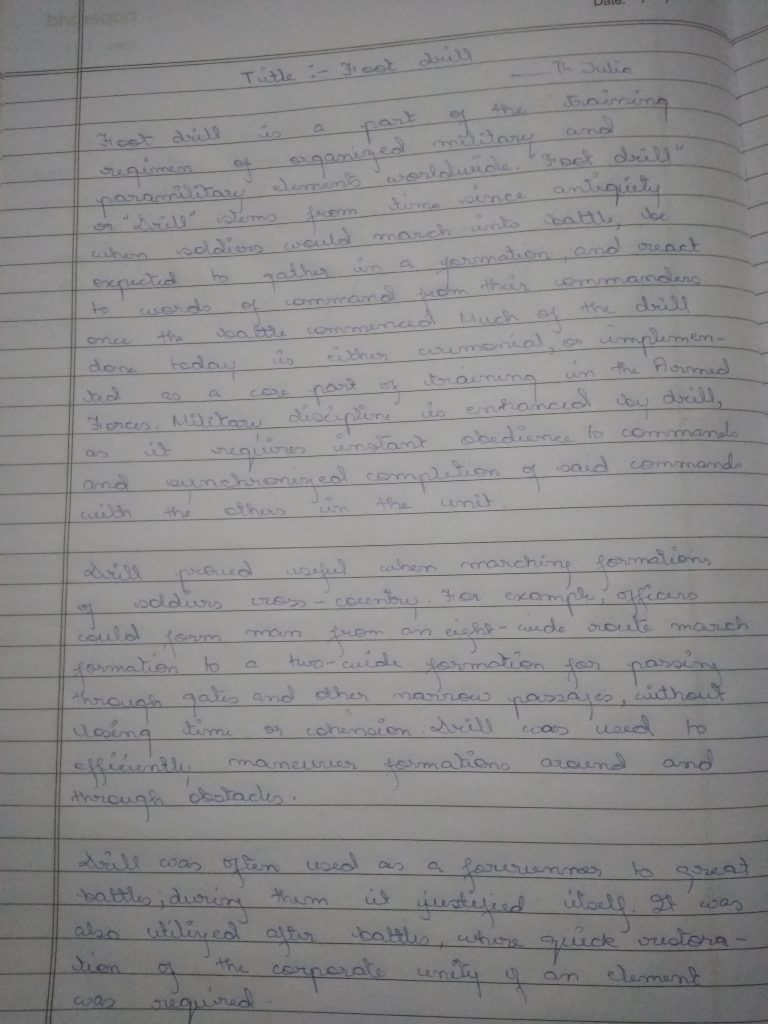 Date:
Title :- Foot drill
— Th Julia
Foot drill is a part of the training
regimen of organized military and
paramilitary elements worldwide. "Foot drill"
or "Drill" stems from time since antiquety
when soldiers would march into battle, be
expected to gather in a formation, and react
to words of command from their commanders
once the battle commenced Much of the drill
done today is either ceremonial, or implemen-
ted as a core part of training in the Armed
Forces. Military discipline is enhanced by drill,
as it requires instant obedience to commands
and synchronized completion of said commands
with the others in the unit.
Drill proved useful when marching formations
of soldiers cross-country. For example, officers
could form man from an eight-wide route march
formation to a two-wide formation for passing
through gates and other narrow passages, without
losing time or cohension. Drill was used to
efficiently maneuver formations around and
through obstacles.
Drill was often used as a forerunner to great
battles; during them it justified itself. It was
also utilized after battles, where quick restora-
tion of the corporate unity of an element
was required.